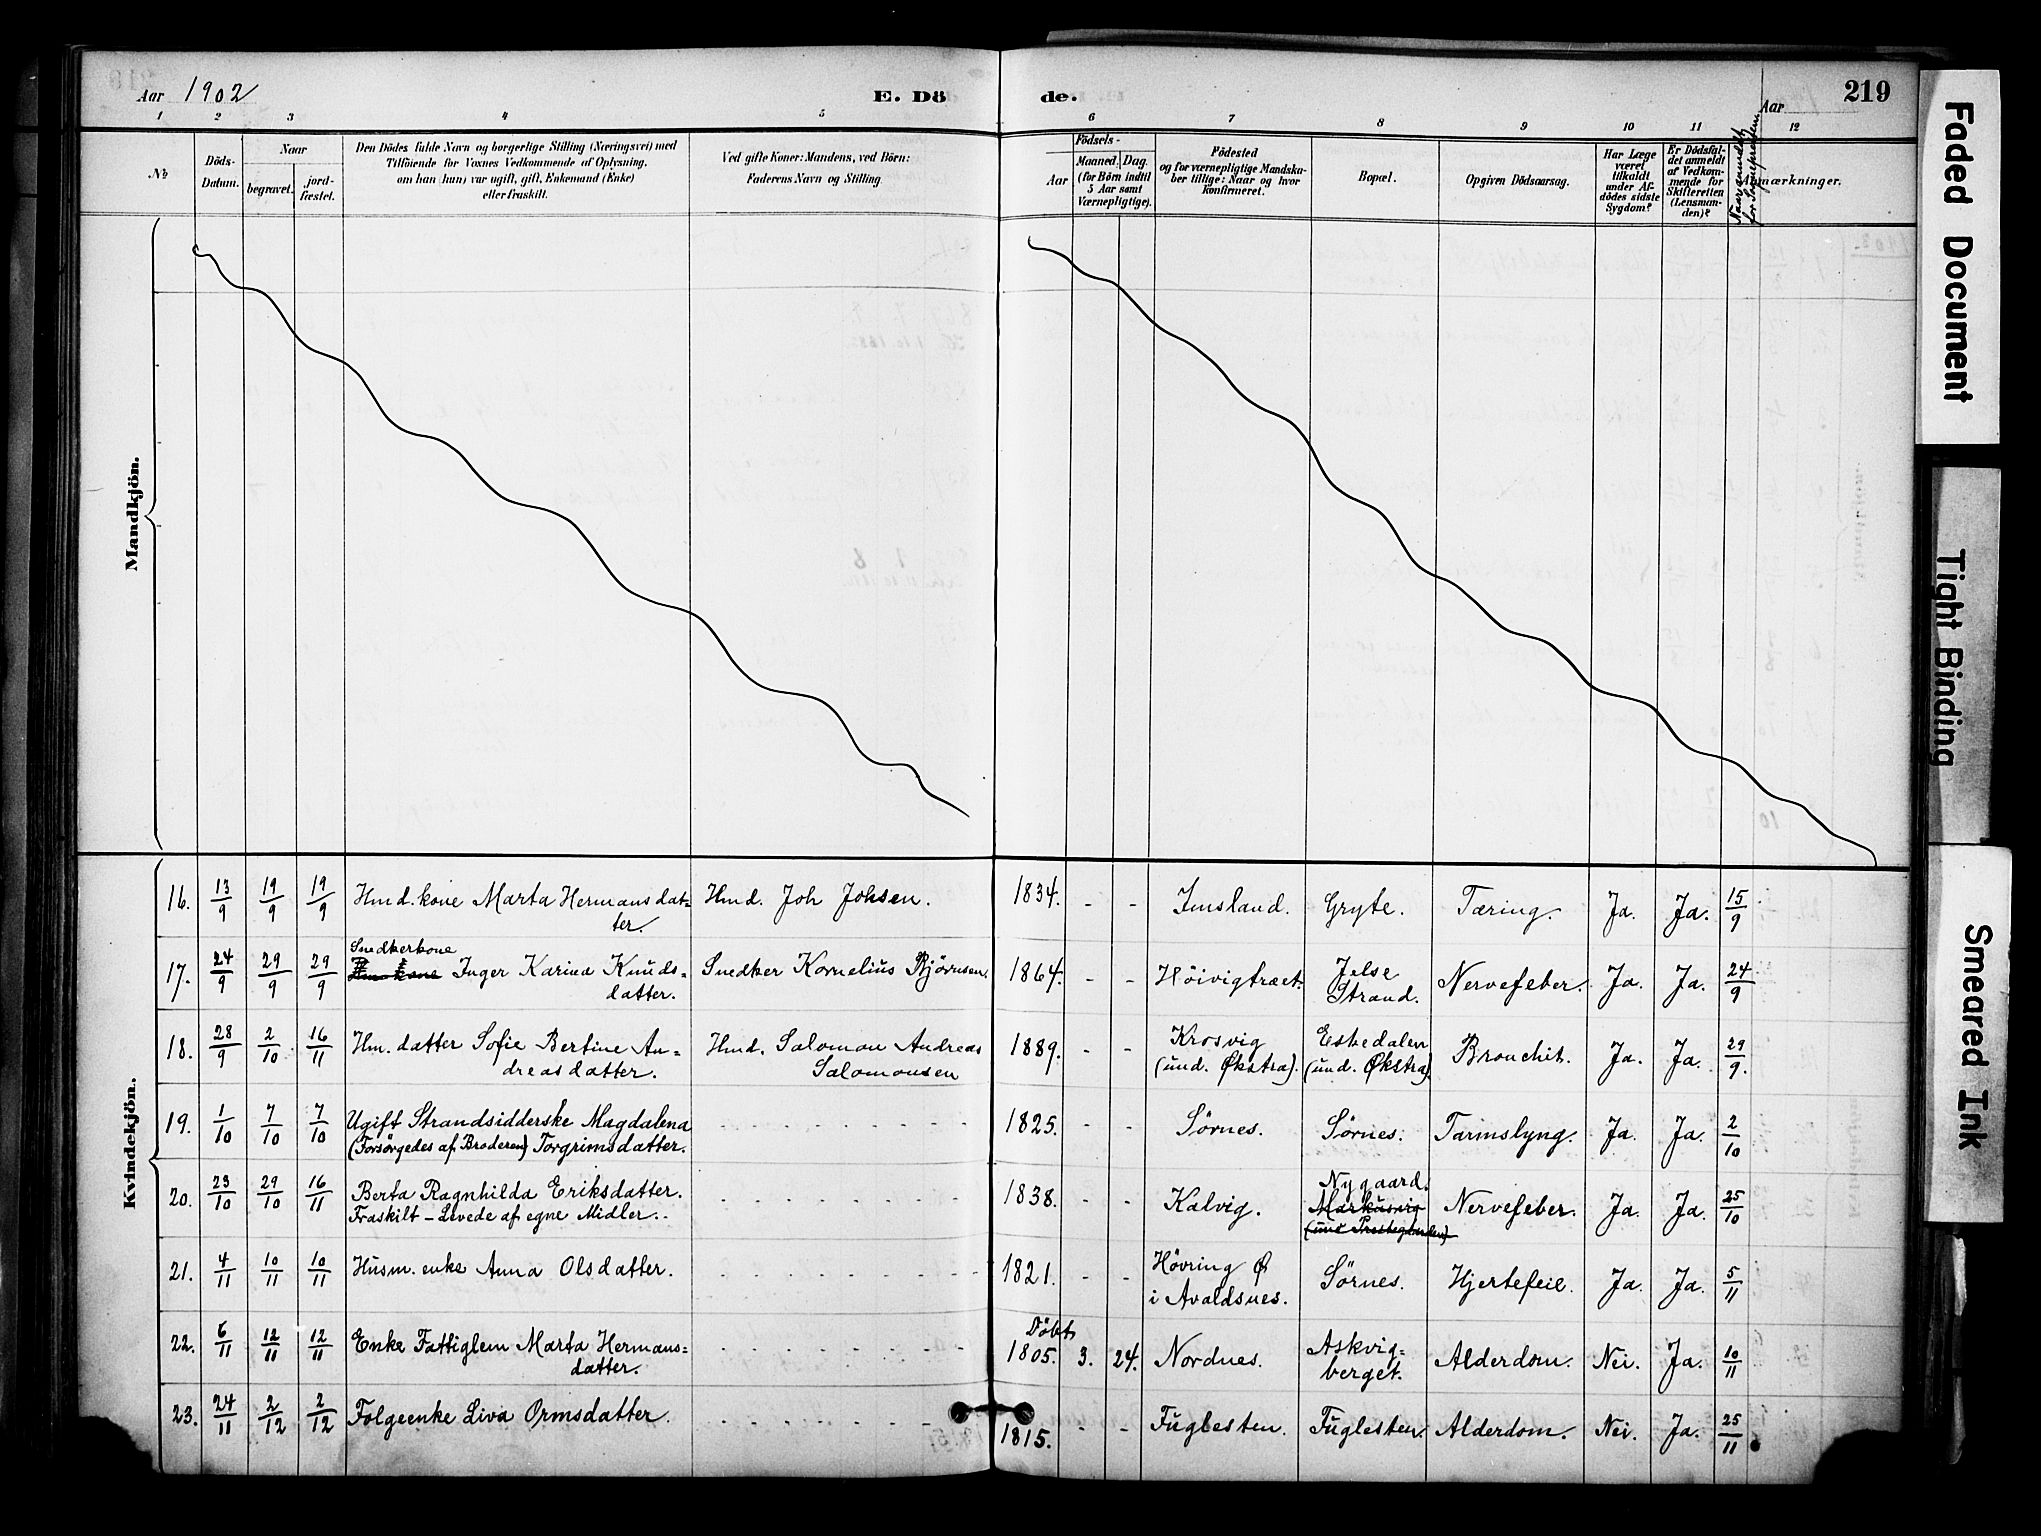 Aar 1902
E. Dö
de.
Aar
219
1 2 3 4 5 6 7 8 9 10 11 12
№
Döds-
Datum.
Naar
begravet.
jord-
fæstet.
Den Dödes fulde Navn og borgerlige Stilling (Næringsvei) med
Tilföiende for Voxnes Vedkommende af Oplysning,
om han (hun) var ugift, gift, Enkemand (Enke)
eller fraskilt.
Ved gifte Koner: Mandens, ved Börn:
Faderens Navn og Stilling.
Födsels-
Aar
Maaned. Dag.
(for Börn indtil
5 Aar samt
Værnepligtige).
Födested
og for værnepligtige Mandska-
ber tillige: Naar og hvor
konfirmeret.
Bopæl.
Opgiven Dödsaarsag.
Har Læge
været
tilkaldt
under Af-
dödes sidste
Sygdom?
Er Dödsfal-
det anmeldt
af Vedkom-
mende for
Skifteretten
(Lensman-
den)?
Naar anmeldt
for Sognepræsten
mærkninger.
Mandkjön.
Kvindekjön.
16. 13/9 19/9 19/9 Hmd. kone Marta Hermansdat=
ter. Hmd. Joh Johsen. 1834. - - Imsland. Gryte. Tæring. Ja. Ja. 15/9
17. 24/9 29/9 29/9 Snedkerkone
Hm kone Inger Karine Knuds=
datter. Snedker Kornelius Björnsen. 1864. - - Höivigtræet. Jelse
Strand. Nervefeber. Ja. Ja. 24/9
18. 28/9 2/10 16/11 Hm. datter Sofie Bertine An=
dreasdatter. Hmd. Salomon Andreas
Salomonsen 1889. - - Krosvig
(und. Økstra). Eskedalen
(und. Økstra) Bronchit. Ja. Ja. 29/9.
19. 1/10 7/10 7/10 Ugift Strandsidderske Magdalena
(Forsörgedes af Broderen) Torgrimsdatter. 1825. - - Sörnes. Sörnes. Tarmslyng. Ja. Ja. 2/10
20. 23/10 29/10 16/11 Berta Ragnhilda Eriksdatter.
Fraskilt - Levede af egne Midler. 1838. - - Kalvig. Nygaard.
Markusvig
(und Præstegarden) Nervefeber. Ja. Ja. 25/10
21. 4/11 10/11 10/11 Husm. enke Anna Olsdatter. 1821. - - Hövring Ø
i Avaldsnes. Sörnes. Hjertefeil. Ja. Ja. 5/11
22. 6/11 12/11 12/11 Enke Fattiglem Marta Hermans=
datter. Döbt
1805. 3. 24. Nordnes. Askvig=
berget. Alderdom. Nei. Ja. 10/11
23. 24/11 2/12 2/12 Folgeenke Liva Ormsdatter. 1815. - - Fuglesten. Fuglesten. Alderdom. Nei. Ja. 25/11
Faded Document
Tight Binding
Smeared Ink